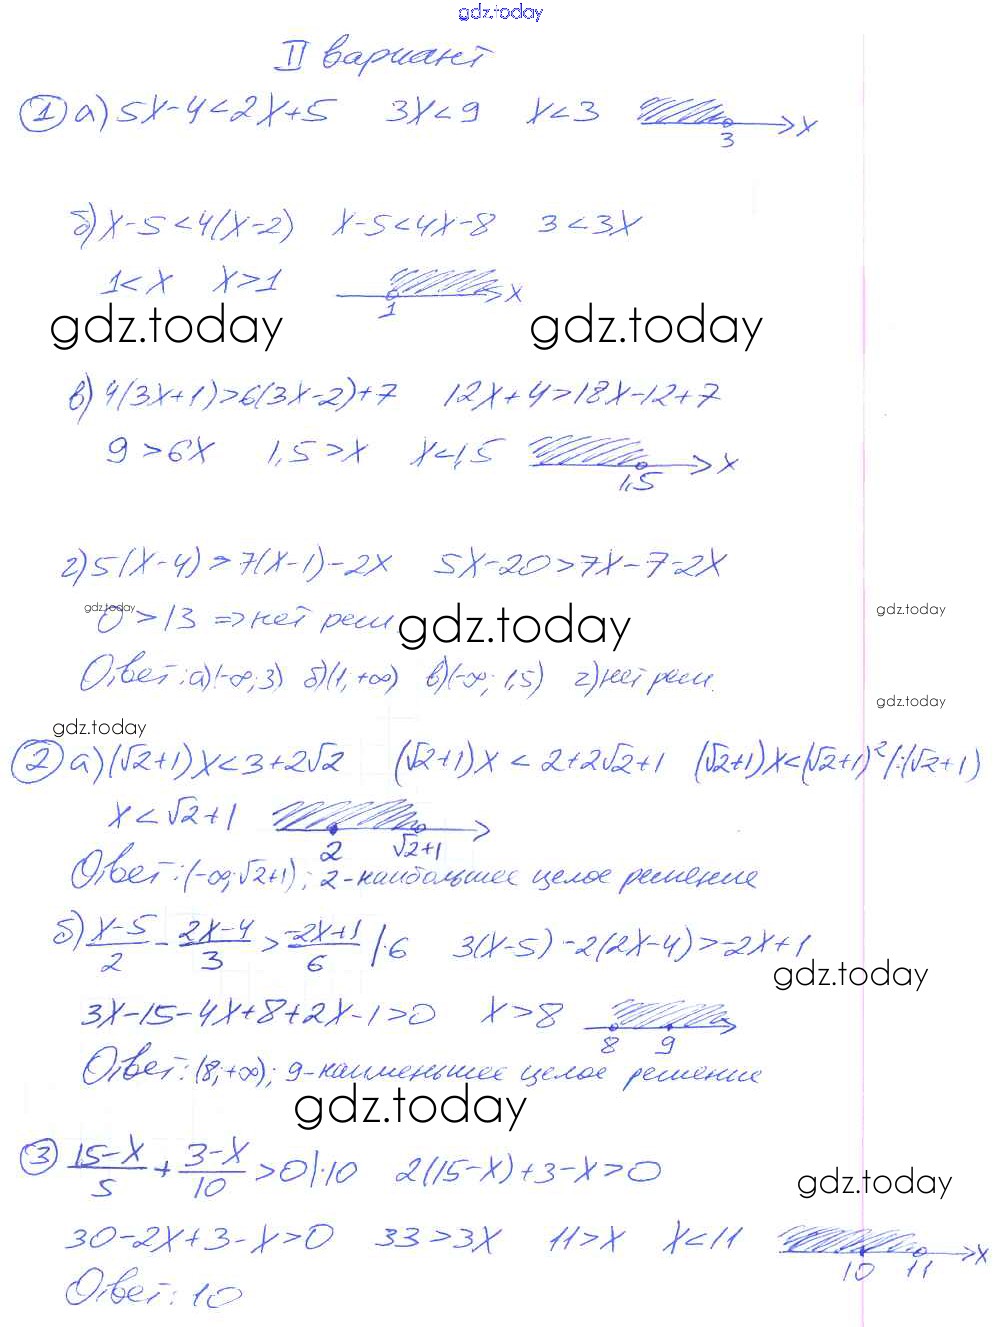 gdz.today
II вариант
1 а) 5x-4<2x+5 3x<9 x<3 x
3
б) x-5<4(x-2) x-5<4x-8 3<3x
1<x x>1 x
1
gdz.today gdz.today
в) 4(3x+1)>6(3x-2)+7 12x+4>18x-12+7
9>6x 1,5>x x<1,5 x
1,5
г) 5(x-4)>7(x-1)-2x 5x-20>7x-7-2x
gdz.today 0>13 => нет реш. gdz.today gdz.today
Ответ: а) (-∞; 3) б) (1; +∞) в) (-∞; 1,5) г) нет реш.
gdz.today
gdz.today
2 а) (√2+1)x<3+2√2 (√2+1)x<2+2√2+1 (√2+1)x<(√2+1)² |:(√2+1)
x<√2+1
2 √2+1
Ответ: (-∞; √2+1); 2-наибольшее целое решение
б) (x-5)/2 - (2x-4)/3 > (-2x+1)/6 |·6 3(x-5)-2(2x-4)>-2x+1
gdz.today
3x-15-4x+8+2x-1>0 x>8
8 9
Ответ: (8; +∞); 9-наименьшее целое решение
gdz.today
3 (15-x)/5 + (3-x)/10 > 0 |·10 2(15-x)+3-x>0
gdz.today
30-2x+3-x>0 33>3x 11>x x<11 x
10 11
Ответ: 10